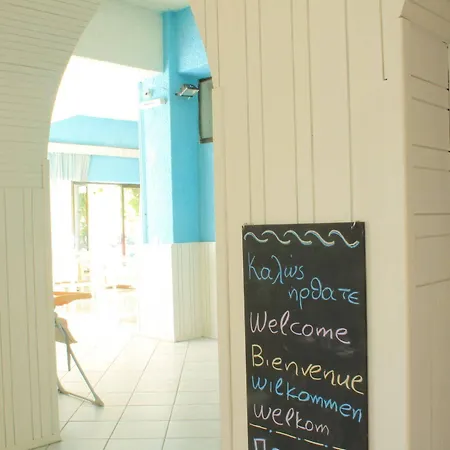 Καλώς
ήρθατε
Welcome
Bienvenue
Wilkommen
Welkom